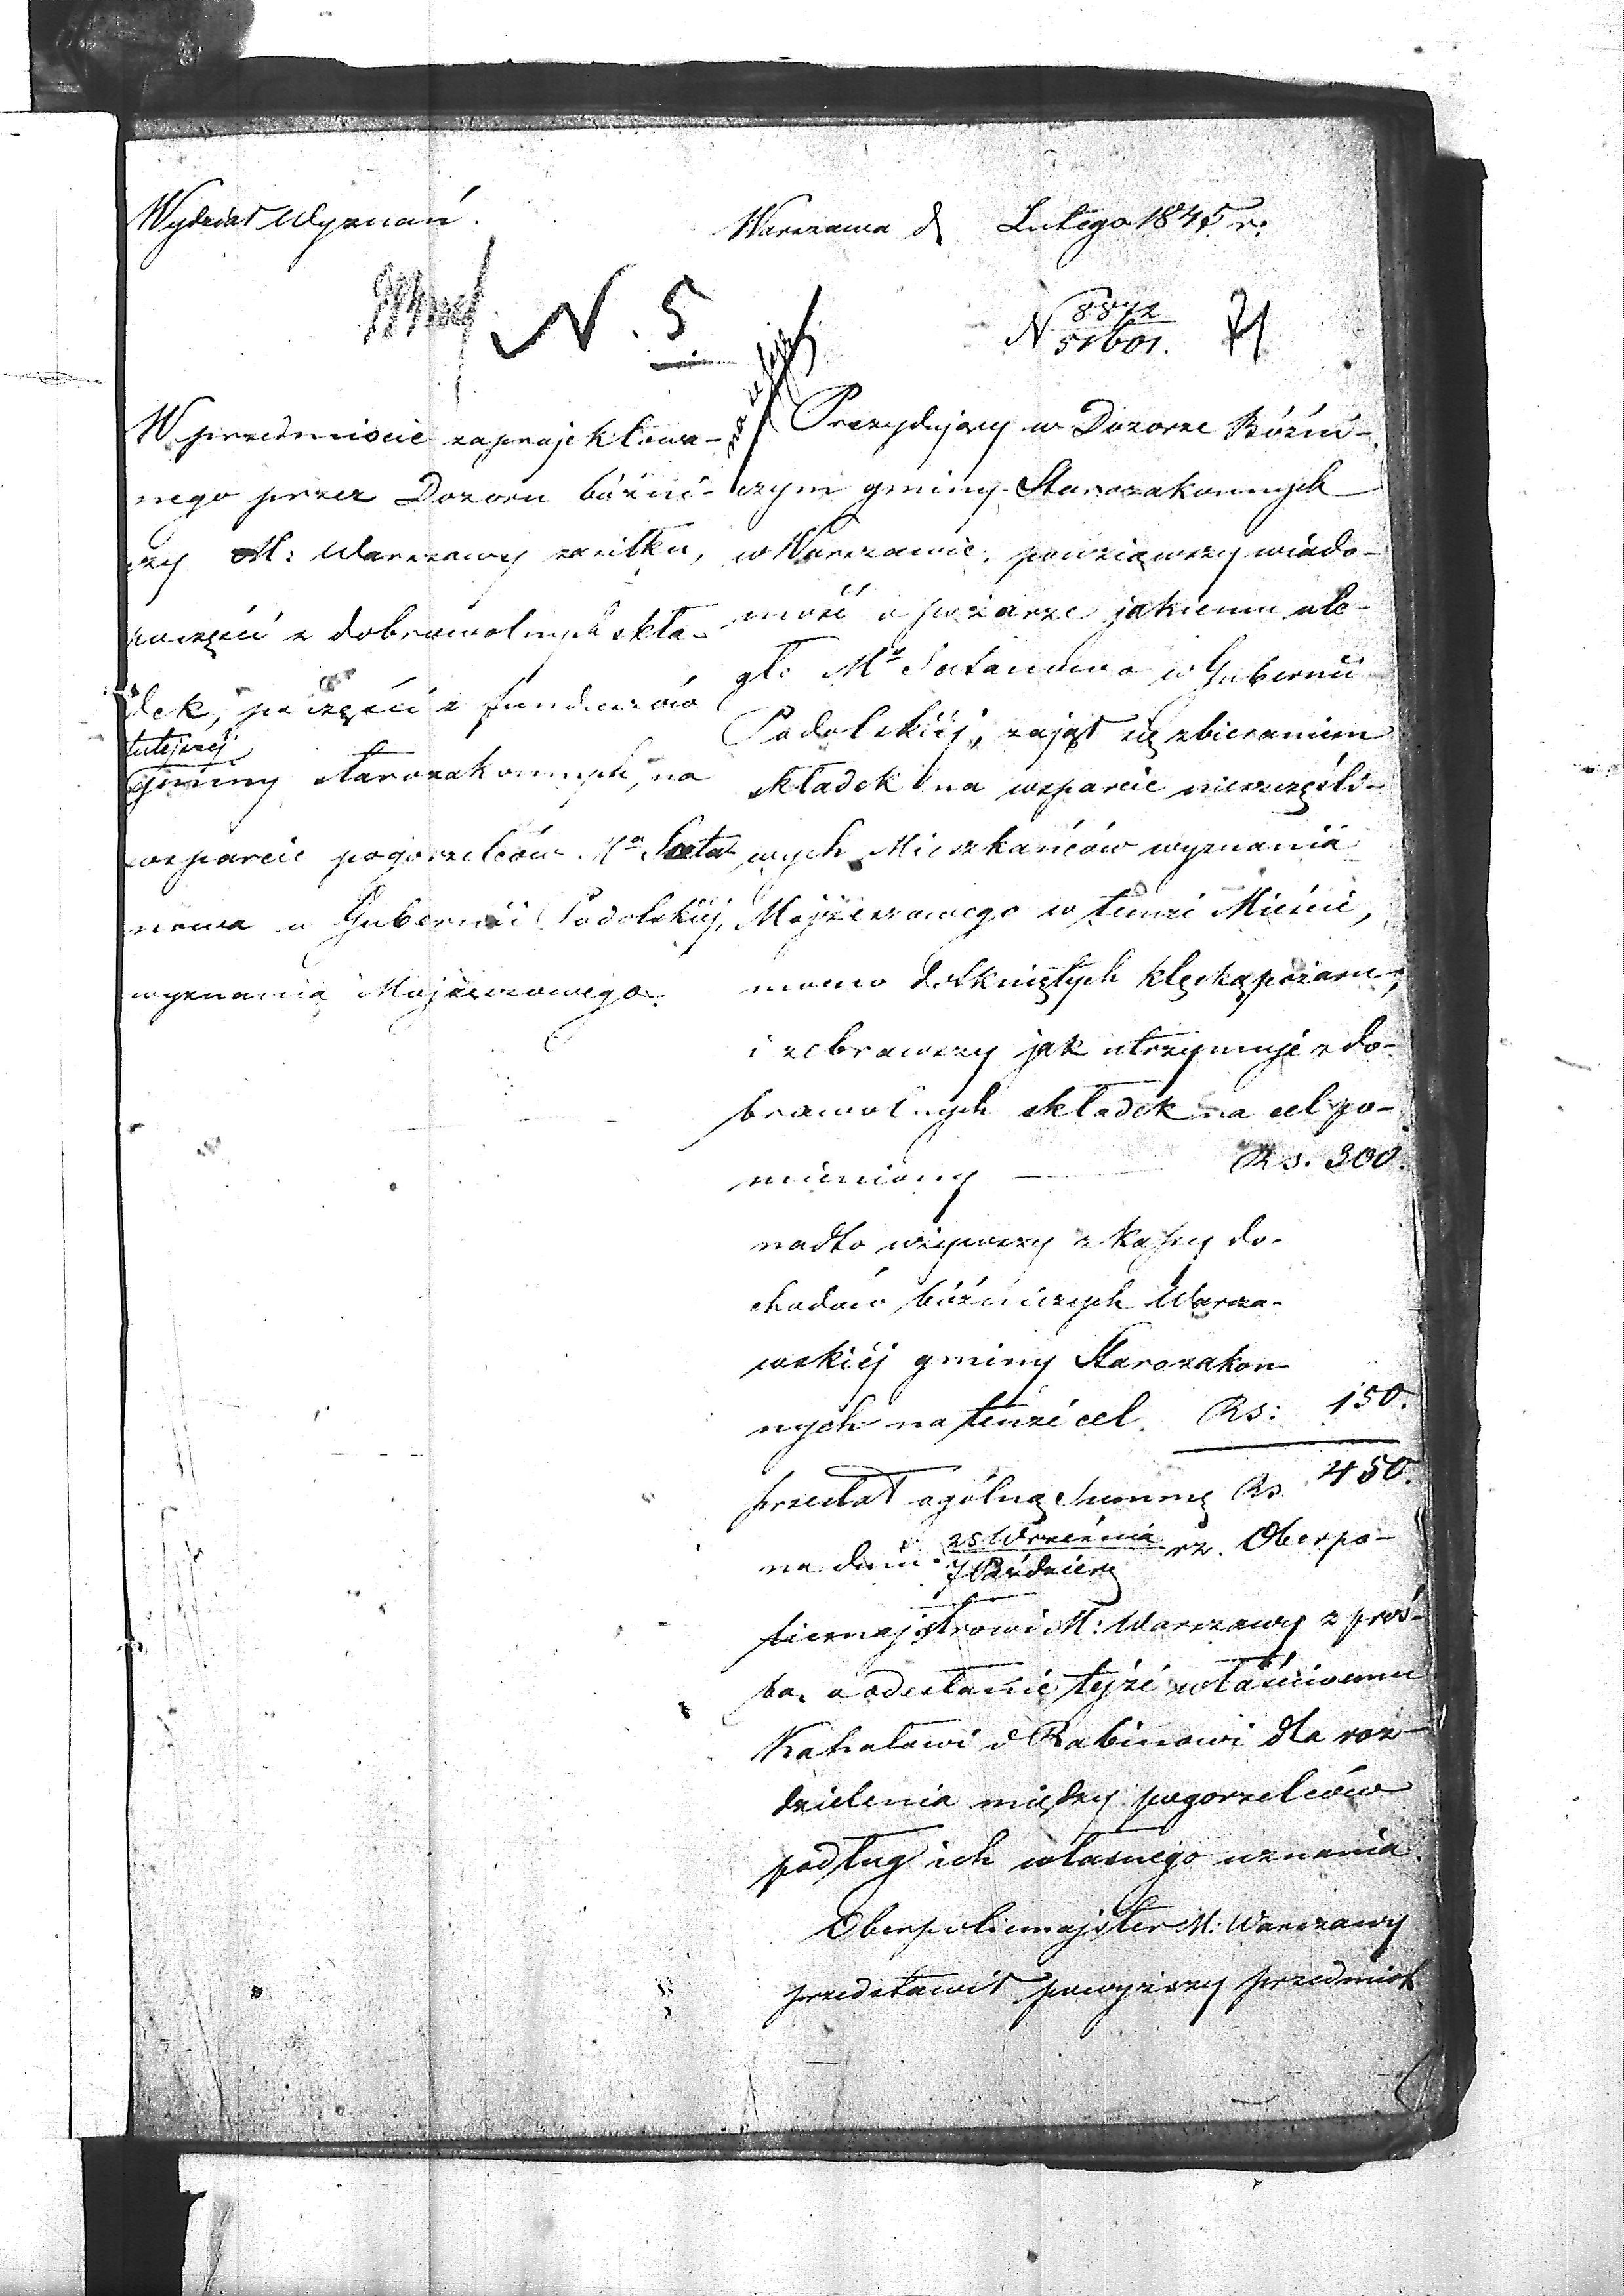 Wydział Wyznań.
Warszawa d Lutego 1845 r.
N. 5
N 8872
51601.
71
W przedmiocie zaprojektowa-
nego przez Dozoru bóźni-
czy M: Warszawy zasiłku,
poczęści z dobrowolnych skła-
dek, poczęści z funduszów
tutejszej
gminy starozakonnych, na
wsparcie pogorzelców Mta Sata
nowa w Gubernii Podolskiéj,
wyznania Mojżeszowego.
Prezydujący w Dozorze Bóźni-
czym gminy Starozakonnych
w Warszawie, powziąwszy wiado-
mość o pożarze jakiemu ule-
gło Mto Satanowo w Gubernii
Podolskiéj, zajął się zbieraniem
składek na wsparcie nieszczęśli-
wych Mieszkańców wyznania
Mojżeszowego w temże Mieście,
mocno dotkniętych klęską pożaru,
i zebrawszy jak utrzymuje z do-
browolnych składek na cel po-
mieniony — Rs. 300.
nadto wziąwszy z Kassy do-
chodów bóźniczych Warsza-
wskiéj gminy Starozakon-
nych na tenże cel Rs: 150.
przesłał ogólną Summę Rs. 450.
na dniu 25 Września
7 Paździer. rz. Oberpo-
licmajstrowi M: Warszawy z proś-
bą o odesłanie tejże właściwemu
Kahałowi i Rabinowi dla roz-
dzielenia między pogorzelców
podług ich własnego uznania.
Oberpolicmajster M: Warszawy
przedstawił powyższy przedmiot